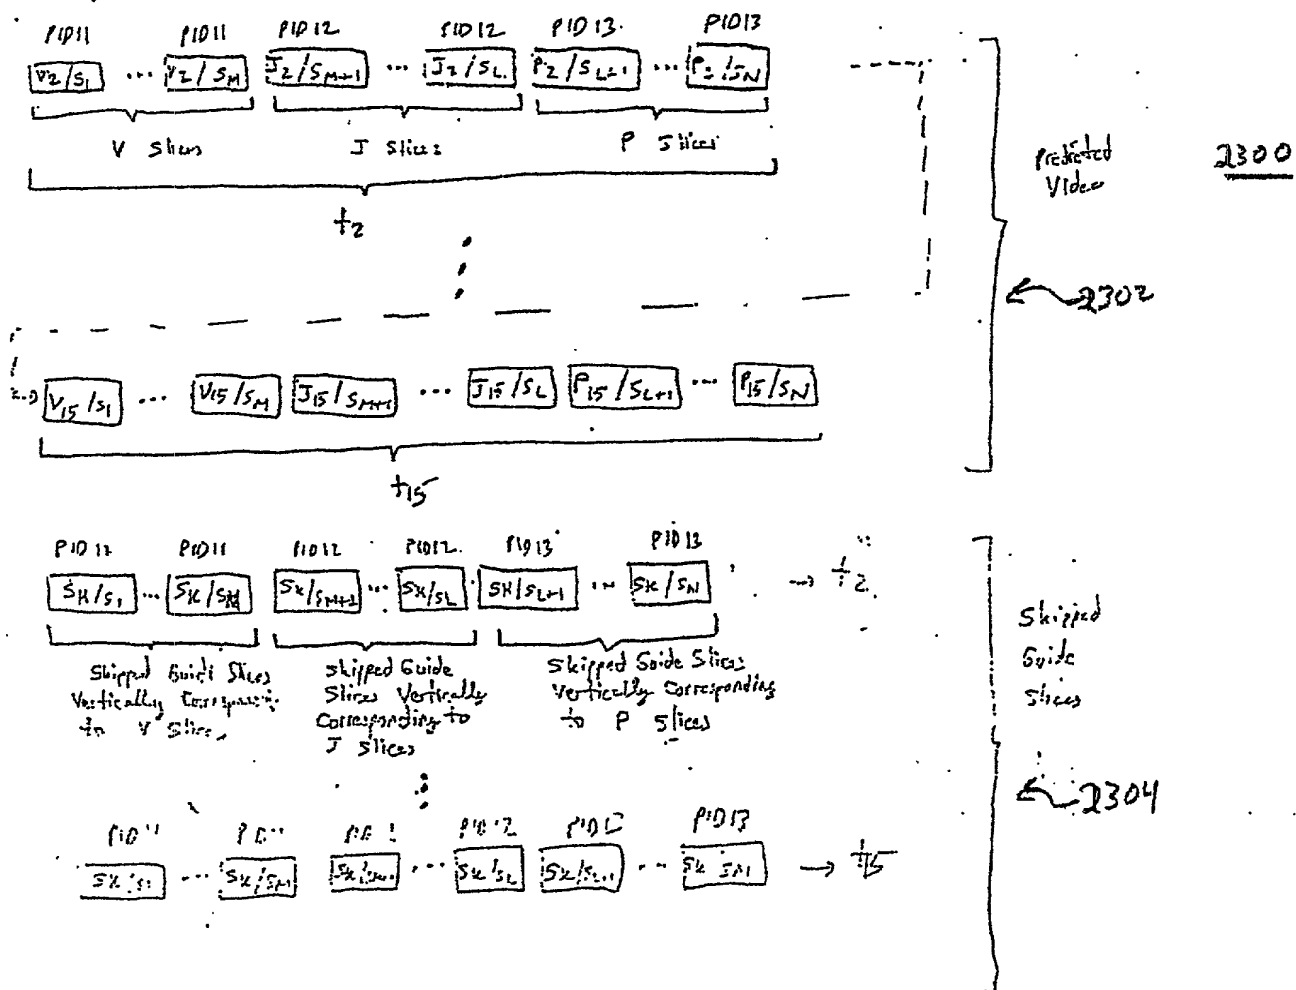 PID11 PID11 PID12 PID12 PID13 PID13
V2/S1 ... V2/SM J2/SM+1 ... J2/SL P2/SL+1 ... P2/SN
V Slices J Slices P Slices
t2
Predicted
Video
2300
2302
V15/S1 ... V15/SM J15/SM+1 ... J15/SL P15/SL+1 ... P15/SN
t15
PID11 PID12 PID12 PID13 PID13
SK/S1 ... SK/SM SK/SM+1 ... SK/SL SK/SL+1 ... SK/SN → t2
Skipped Guide Slices
Vertically Corresponding
to V Slices
Skipped Guide
Slices Vertically
Corresponding to
J Slices
Skipped Guide Slices
Vertically Corresponding
to P Slices
Skipped
Guide
Slices
2304
PID12 PID13
SK/S1 ... SK/SM ... SK/SL SK/SL+1 ... SK → t15